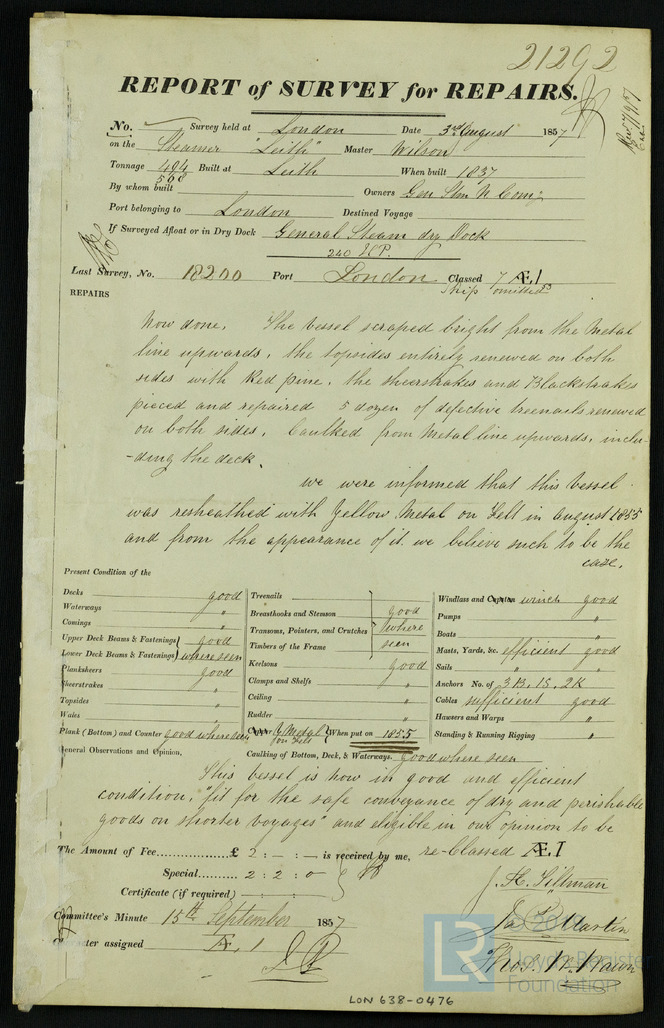 21292
REPORT of SURVEY for REPAIRS.
No. Survey held at London Date 3rd August 1857
on the Steamer "Leith" Master Wilson
Tonnage 494 568 Built at Leith When built 1837
By whom built Owners Gen Stm N Comy
Port belonging to London Destined Voyage
If Surveyed Afloat or in Dry Dock General Steam dry Dock
240 H.P.
Last Survey, No. 18200 Port London Classed 7 Æ I
Ship omitted
REPAIRS
Now done. The Vessel scraped bright from the Metal
line upwards, the topsides entirely renewed on both
sides with Red pine, the sheerstrakes and Blackstrakes
pieced and repaired 5 dozen of defective treenails renewed
on both sides, Caulked from Metal line upwards, inclu-
-ding the deck.
we were informed that this Vessel
was resheathed with Yellow Metal on Felt in August 1855
and from the appearance of it we believe such to be the
case.
Present Condition of the
Decks good
Waterways "
Comings "
Upper Deck Beams & Fastenings good
Lower Deck Beams & Fastenings where seen
Planksheers good
Sheerstrakes "
Topsides "
Wales "
Plank (Bottom) and Counter good where seen
Treenails
Breasthooks and Stemson good
Transoms, Pointers, and Crutches where
Timbers of the Frame seen
Keelsons good
Clamps and Shelfs "
Ceiling "
Rudder "
Copper Y Metal on Felt When put on 1855
Caulking of Bottom, Deck, & Waterways. good where seen
Windlass and Capstan winch good
Pumps "
Boats "
Masts, Yards, &c. efficient good
Sails " "
Anchors No. of 3B, 1S, 2K
Cables sufficient good
Hawsers and Warps "
Standing & Running Rigging "
General Observations and Opinion,
This vessel is now in good and efficient
condition, "fit for the safe conveyance of dry and perishable
goods on shorter voyages" and eligible in our opinion to be
re-Classed Æ I
The Amount of Fee £ 2 : - : - is received by me,
Special 2 : 2 : 0
Certificate (if required)
J. H. Tillman
Committee's Minute 15th September 1857
Jas Martin
Character assigned Æ 1
Thos. W. Wawn
Lloyd's Register
Foundation
LON 638-0476